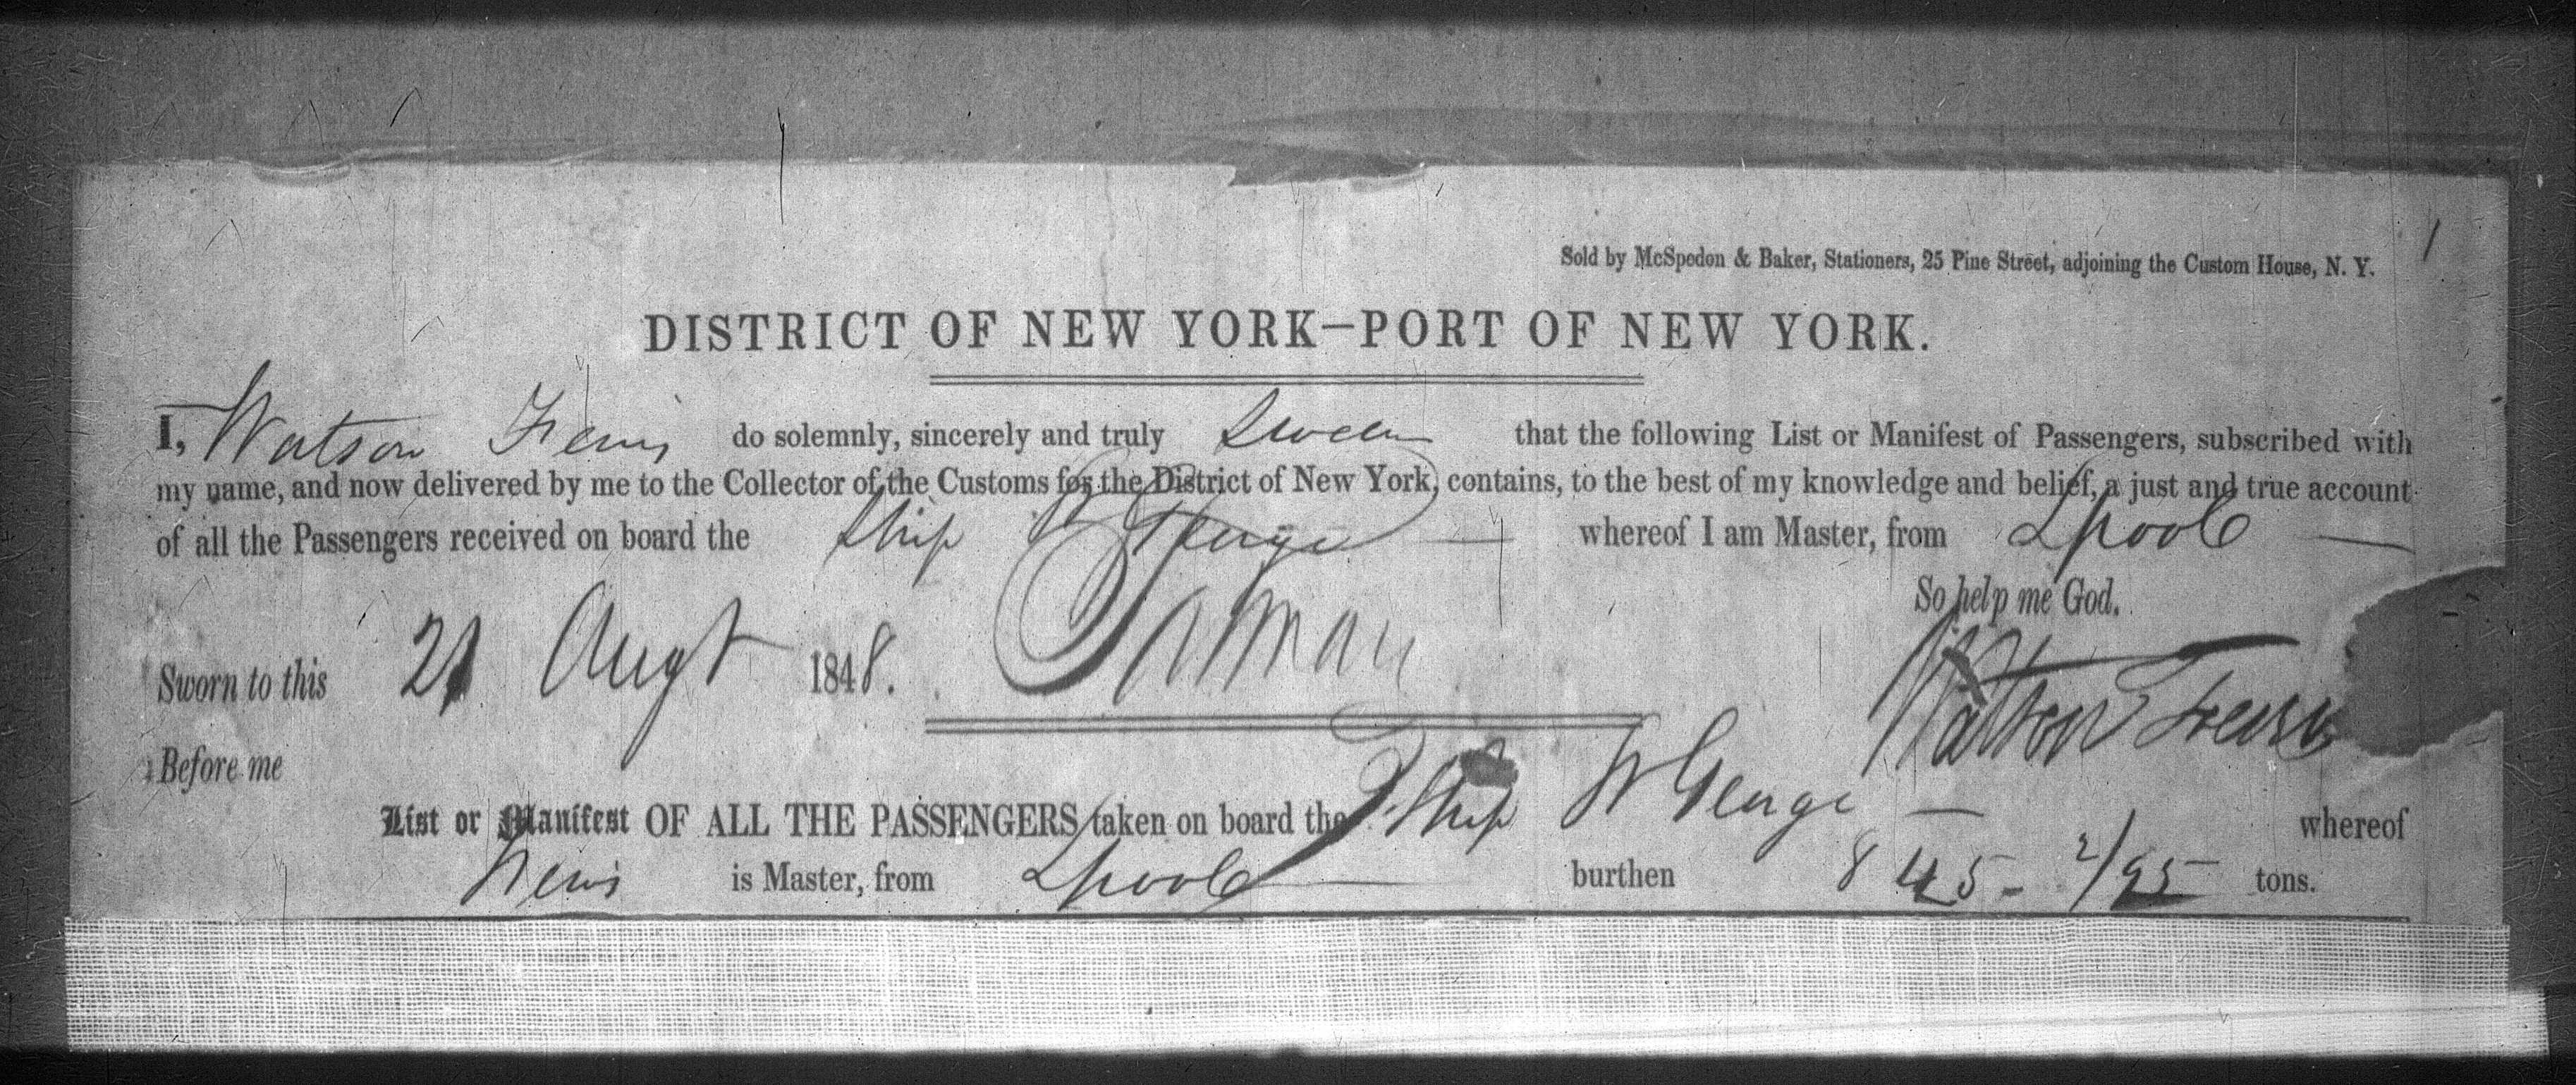 Sold by McSpedon & Baker, Stationers, 25 Pine Street, adjoining the Custom House, N. Y.
DISTRICT OF NEW YORK—PORT OF NEW YORK.
I, Watson do solemnly, sincerely and truly swear that the following List or Manifest of Passengers, subscribed with
my name, and now delivered by me to the Collector of the Customs for the District of New York, contains, to the best of my knowledge and belief, a just and true account
of all the Passengers received on board the Ship George whereof I am Master, from Lpool
So help me God.
Sworn to this 21 Augt 1848. Watson
Before me
List or Manifest OF ALL THE PASSENGERS taken on board the Ship W George whereof
is Master, from Lpool burthen 845 - 2/95 tons.